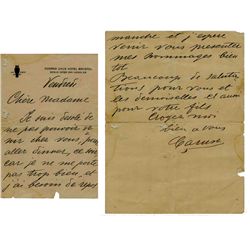 Vendredi
Chère Madame
Je suis désolé de
ne pas pouvoir ve-
nir chez vous, pour
aller dîner, ce soir
car je ne me porte
pas trop bien, et
j'ai besoin de
manche et j'espère
venir vous présenter
mes hommages bien
tôt
Beaucoup de saluta-
tions pour vous et
les demoiselles et aussi
pour votre fils
Croyez moi
bien a vous
Caruso